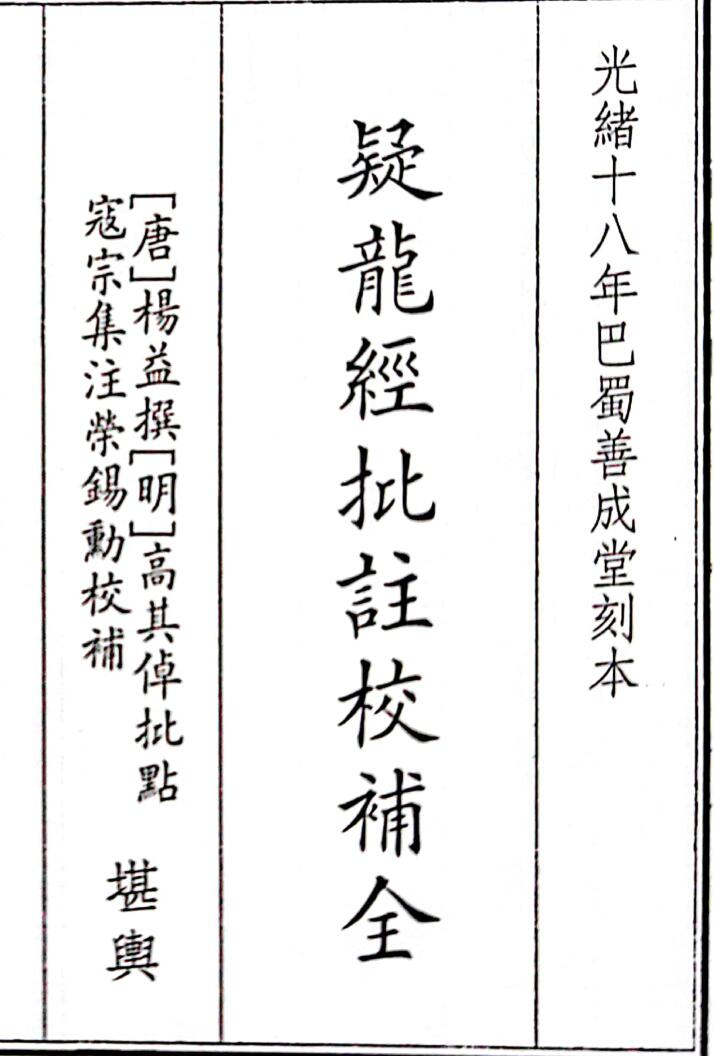 光緒十八年巴蜀善成堂刻本
疑龍經批註校補全
［唐］楊益撰［明］高其倬批點
寇宗集注榮錫勳校補
堪輿